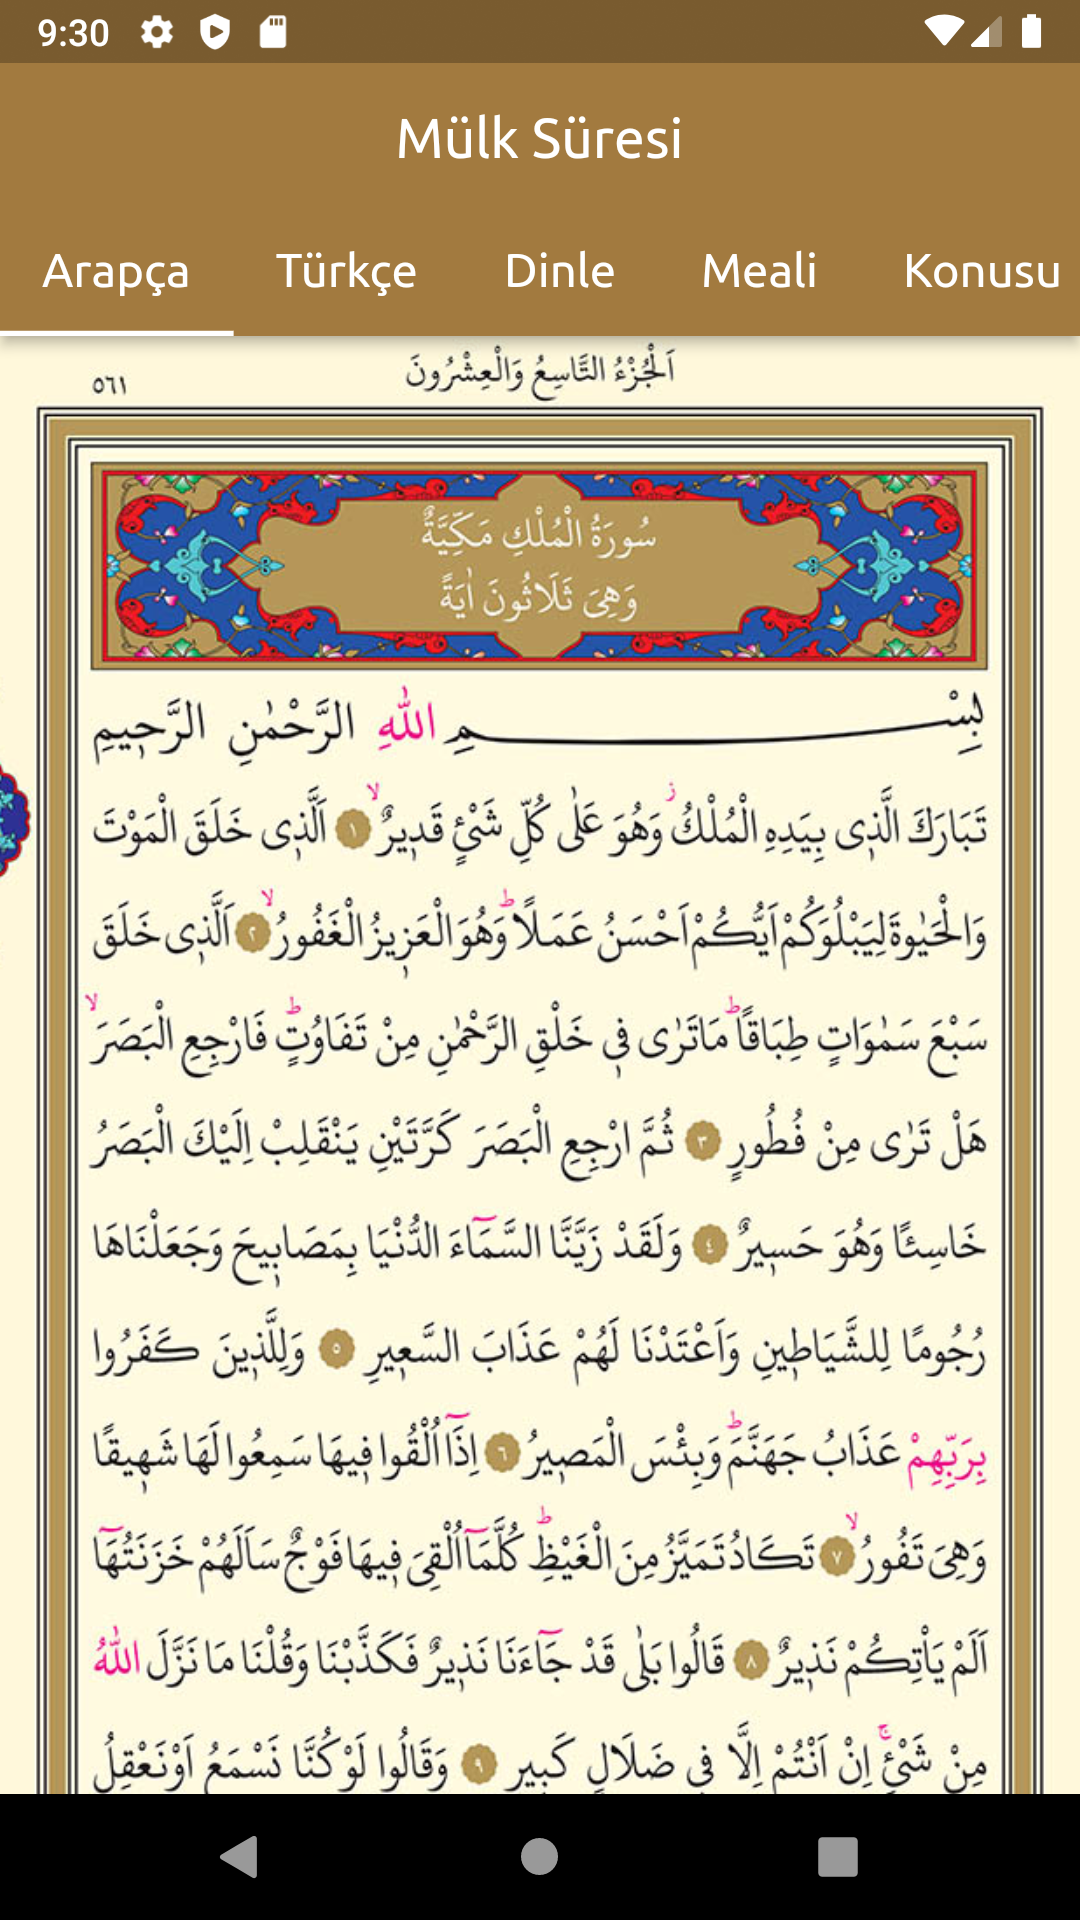 9:30
Mülk Süresi
Arapça Türkçe Dinle Meali Konusu
اَلْجُزْءُ التَّاسِعُ وَالْعِشْرُونَ
٥٦١
سُورَةُ الْمُلْكِ مَكِّيَّةٌ
وَهِىَ ثَلَاثُونَ اٰيَةً
بِسْمِ اللّٰهِ الرَّحْمٰنِ الرَّحٖيمِ
تَبَارَكَ الَّذٖى بِيَدِهِ الْمُلْكُ ز وَهُوَ عَلٰى كُلِّ شَىْءٍ قَدٖيرٌ لا ١ اَلَّذٖى خَلَقَ الْمَوْتَ
وَالْحَيٰوةَ لِيَبْلُوَكُمْ اَيُّكُمْ اَحْسَنُ عَمَلًا ط وَهُوَ الْعَزٖيزُ الْغَفُورُ لا ٢ اَلَّذٖى خَلَقَ
سَبْعَ سَمٰوَاتٍ طِبَاقًا ط مَاتَرٰى فٖى خَلْقِ الرَّحْمٰنِ مِنْ تَفَاوُتٍ ط فَارْجِعِ الْبَصَرَ لا
هَلْ تَرٰى مِنْ فُطُورٍ ٣ ثُمَّ ارْجِعِ الْبَصَرَ كَرَّتَيْنِ يَنْقَلِبْ اِلَيْكَ الْبَصَرُ
خَاسِئًا وَهُوَ حَسٖيرٌ ٤ وَلَقَدْ زَيَّنَّا السَّمَٓاءَ الدُّنْيَا بِمَصَابٖيحَ وَجَعَلْنَاهَا
رُجُومًا لِلشَّيَاطٖينِ وَاَعْتَدْنَا لَهُمْ عَذَابَ السَّعٖيرِ ٥ وَلِلَّذٖينَ كَفَرُوا
بِرَبِّهِمْ عَذَابُ جَهَنَّمَ ط وَبِئْسَ الْمَصٖيرُ ٦ اِذَٓا اُلْقُوا فٖيهَا سَمِعُوا لَهَا شَهٖيقًا
وَهِىَ تَفُورُ لا ٧ تَكَادُ تَمَيَّزُ مِنَ الْغَيْظِ ط كُلَّمَٓا اُلْقِىَ فٖيهَا فَوْجٌ سَاَلَهُمْ خَزَنَتُهَٓا
اَلَمْ يَاْتِكُمْ نَذٖيرٌ ٨ قَالُوا بَلٰى قَدْ جَٓاءَنَا نَذٖيرٌ فَكَذَّبْنَا وَقُلْنَا مَا نَزَّلَ اللّٰهُ
مِنْ شَىْءٍ ج اِنْ اَنْتُمْ اِلَّا فٖى ضَلَالٍ كَبٖيرٍ ٩ وَقَالُوا لَوْ كُنَّا نَسْمَعُ اَوْ نَعْقِلُ